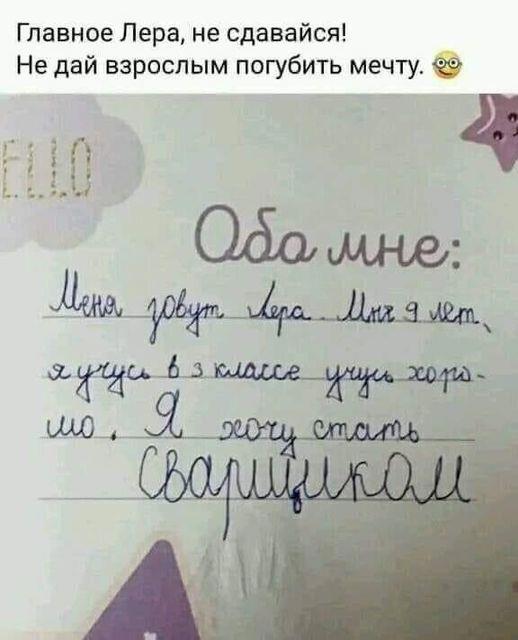 Главное Лера, не сдавайся!
Не дай взрослым погубить мечту. 🤓
ELLO
Обо мне:
Меня зовут Лера. Мне 9 лет,
я учусь в 3 классе учусь хоро-
шо. Я хочу стать
Сварщиком